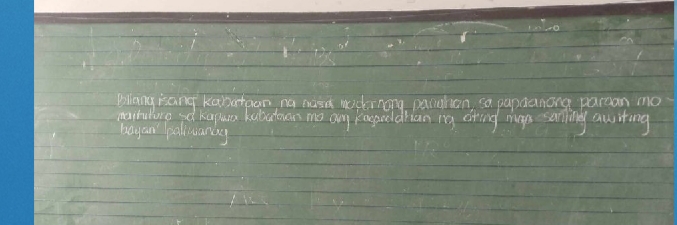 Bilang isang kabataan na nasa modernong panahon, sa papaanong paraan mo
maituturo sa kapwa kabataan mo ang kagandahan ng ating mga sariling awiting
bayan? Ipaliwanag